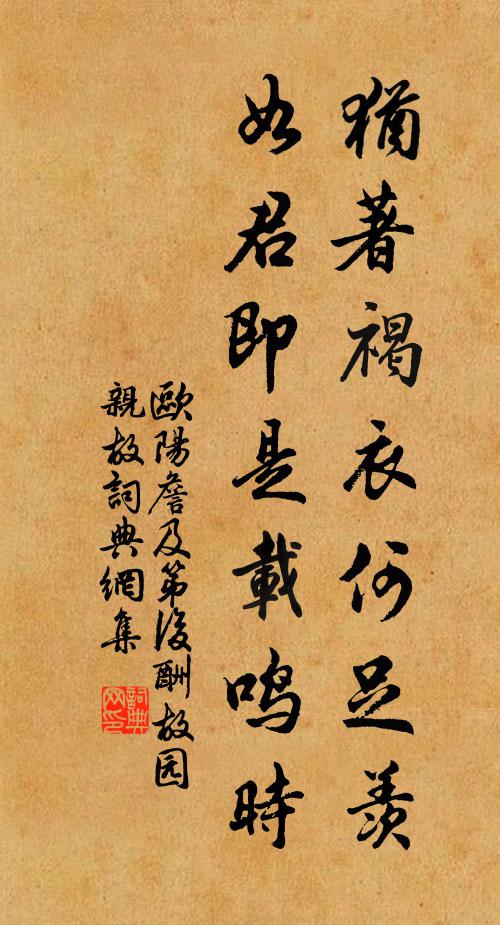 猶著褐衣何足羨
如君即是載鳴時
歐陽詹及第後酬故园
親故詞典網集
詞典
网印